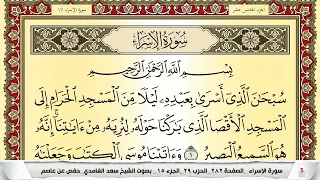 سورة الإسراء ١٧
الجزء الخامس عشر
سُورَةُ الإِسْرَاءِ
بِسْمِ اللَّهِ الرَّحْمَٰنِ الرَّحِيمِ
سُبْحَٰنَ ٱلَّذِىٓ أَسْرَىٰ بِعَبْدِهِۦ لَيْلًا مِّنَ ٱلْمَسْجِدِ ٱلْحَرَامِ إِلَى
ٱلْمَسْجِدِ ٱلْأَقْصَا ٱلَّذِى بَٰرَكْنَا حَوْلَهُۥ لِنُرِيَهُۥ مِنْ ءَايَٰتِنَآ إِنَّهُۥ
هُوَ ٱلسَّمِيعُ ٱلْبَصِيرُ ١ وَءَاتَيْنَا مُوسَى ٱلْكِتَٰبَ وَجَعَلْنَٰهُ
سورة الإسراء . الصفحة ٢٨٢ . الحزب ٢٩ . الجزء ١٥ . بصوت الشيخ سعد الغامدي . حفص عن عاصم
5